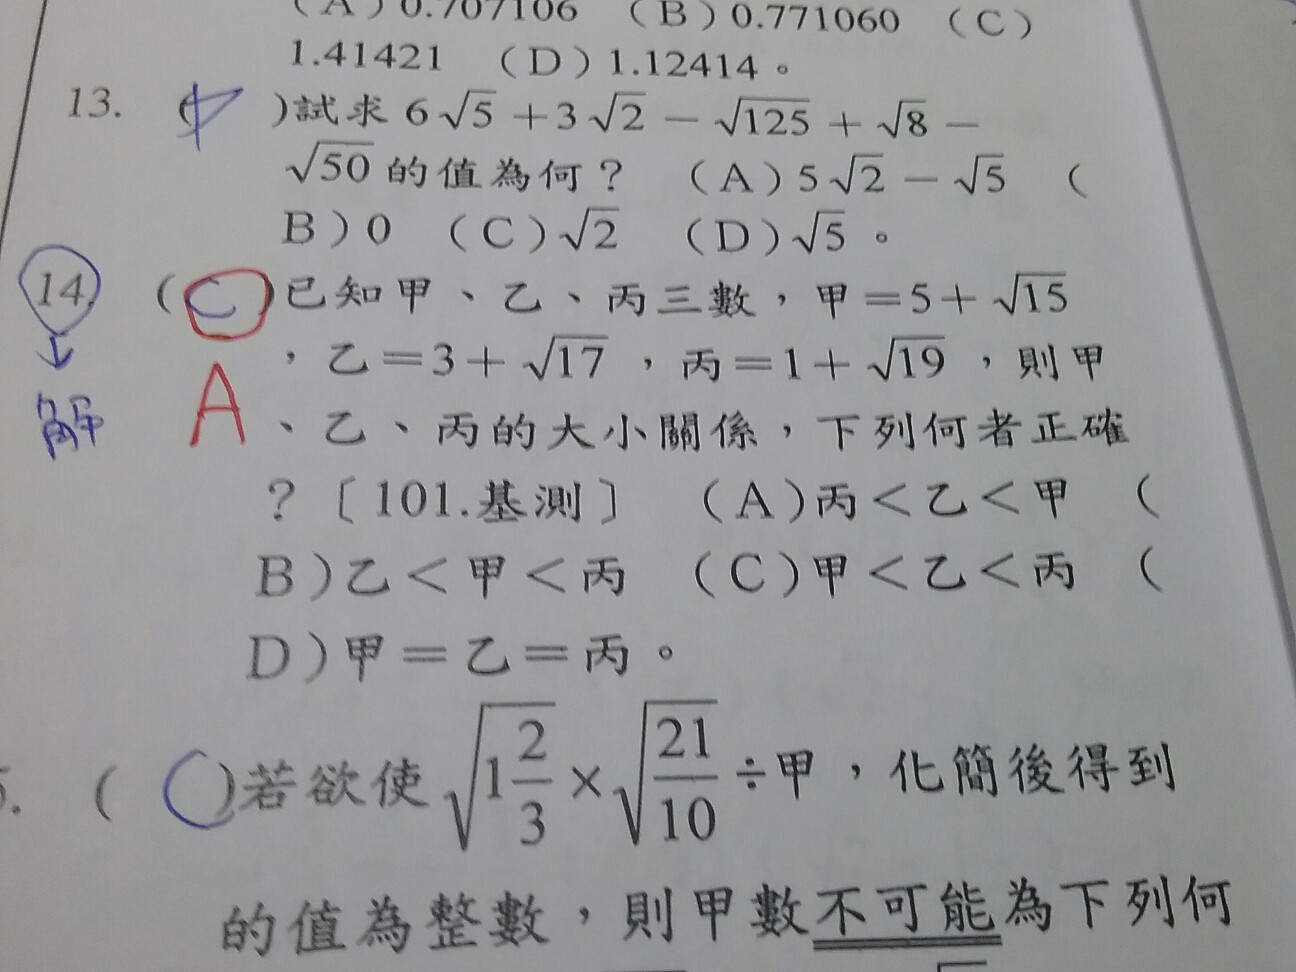 (A)0.707106 (B)0.771060 (C)
1.41421 (D)1.12414。
13. ( )試求 6√5 +3√2 − √125 + √8 −
√50 的值為何? (A)5√2 − √5 (
B)0 (C)√2 (D)√5。
14. (C)已知甲、乙、丙三數,甲=5+ √15
,乙=3+ √17 ,丙=1+ √19 ,則甲
解 A 、乙、丙的大小關係,下列何者正確
?〔101.基測〕 (A)丙<乙<甲 (
B)乙<甲<丙 (C)甲<乙<丙 (
D)甲=乙=丙。
5. (C)若欲使 √(1 2/3) × √(21/10) ÷甲,化簡後得到
的值為整數,則甲數不可能為下列何